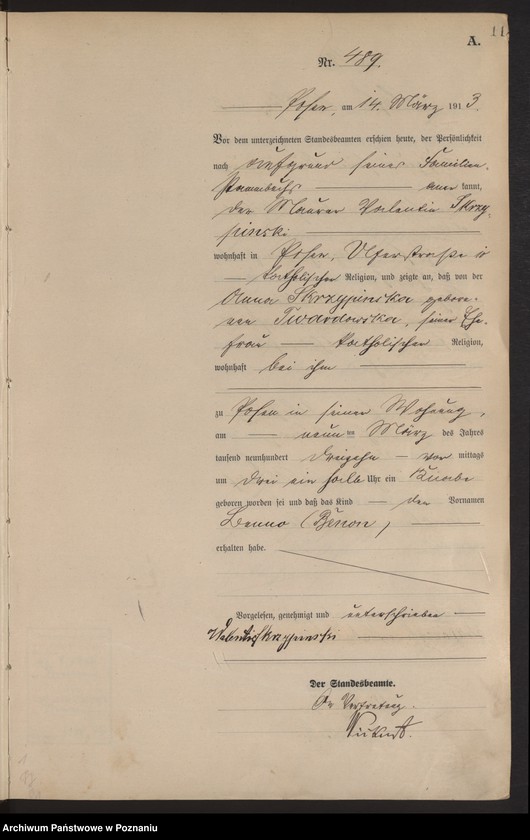 11
A.
Nr. 489.
Posen, am 14. März 1913.
Vor dem unterzeichneten Standesbeamten erschien heute, der Persönlichkeit
nach auf Grund seines Familien-
stammbuchs anerkannt,
der Maurer Valentin Skrzy-
pinski
wohnhaft in Posen, Uferstraße
katholischer Religion, und zeigte an, daß von der
Anna Skrzypinska gebore-
nen Twardowska, seiner Ehe-
frau katholischer Religion,
wohnhaft bei ihm
zu Posen in seiner Wohnung,
am neunten März des Jahres
tausend neunhundert dreizehn vormittags
um drei ein halb Uhr ein Knabe
geboren worden sei und daß das Kind den Vornamen
Benno (Benon)
erhalten habe.
Vorgelesen, genehmigt und unterschrieben
Walenti Skrzypinski
Der Standesbeamte.
In Vertretung.
Archiwum Państwowe w Poznaniu